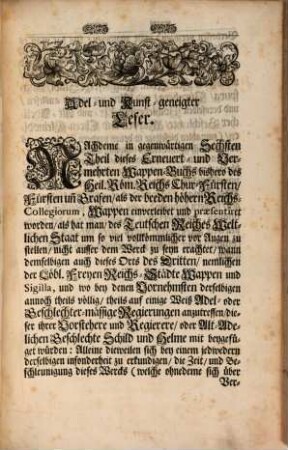 Adel- und Kunst-geneigter
Leser.
NAchdeme in gegenwärtigen Sechsten
Theil dieses Erneuert- und Ver-
mehrten Wappen-Buchs bishero des
Heil. Röm. Reichs Chur-Fürsten/
Fürsten uñ Grafen/als der beeden höhern Reichs-
Collegiorum, Wappen einverleibt und præsentiret
worden/als hat man/des Teutschen Reiches Welt-
lichen Staat um so viel vollkommlicher vor Augen zu
stellen/nicht ausser dem Weeg zu seyn erachtet/wann
demselbigen auch dieses Orts des Dritten/nemlichen
der Löbl. Freyen Reichs-Städte Wappen und
Sigilla, und wo bey denen Vornehmsten derselbigen
annoch theils völlig/theils auf einige Weiß Adel- oder
Geschlechter-mässige Regierungen anzutreffen/die-
ser ihrer Vorstehere und Regierere/oder Alt-Ade-
lichen Geschlechte Schild und Helme mit beygefü-
get würden: Alleine dieweilen sich bey einem jedwedern
derselbigen insonderheit zu erkundigen/die Zeit/und Be-
schleunigung dieses Wercks (welche ohnedeme sich über
Ver-